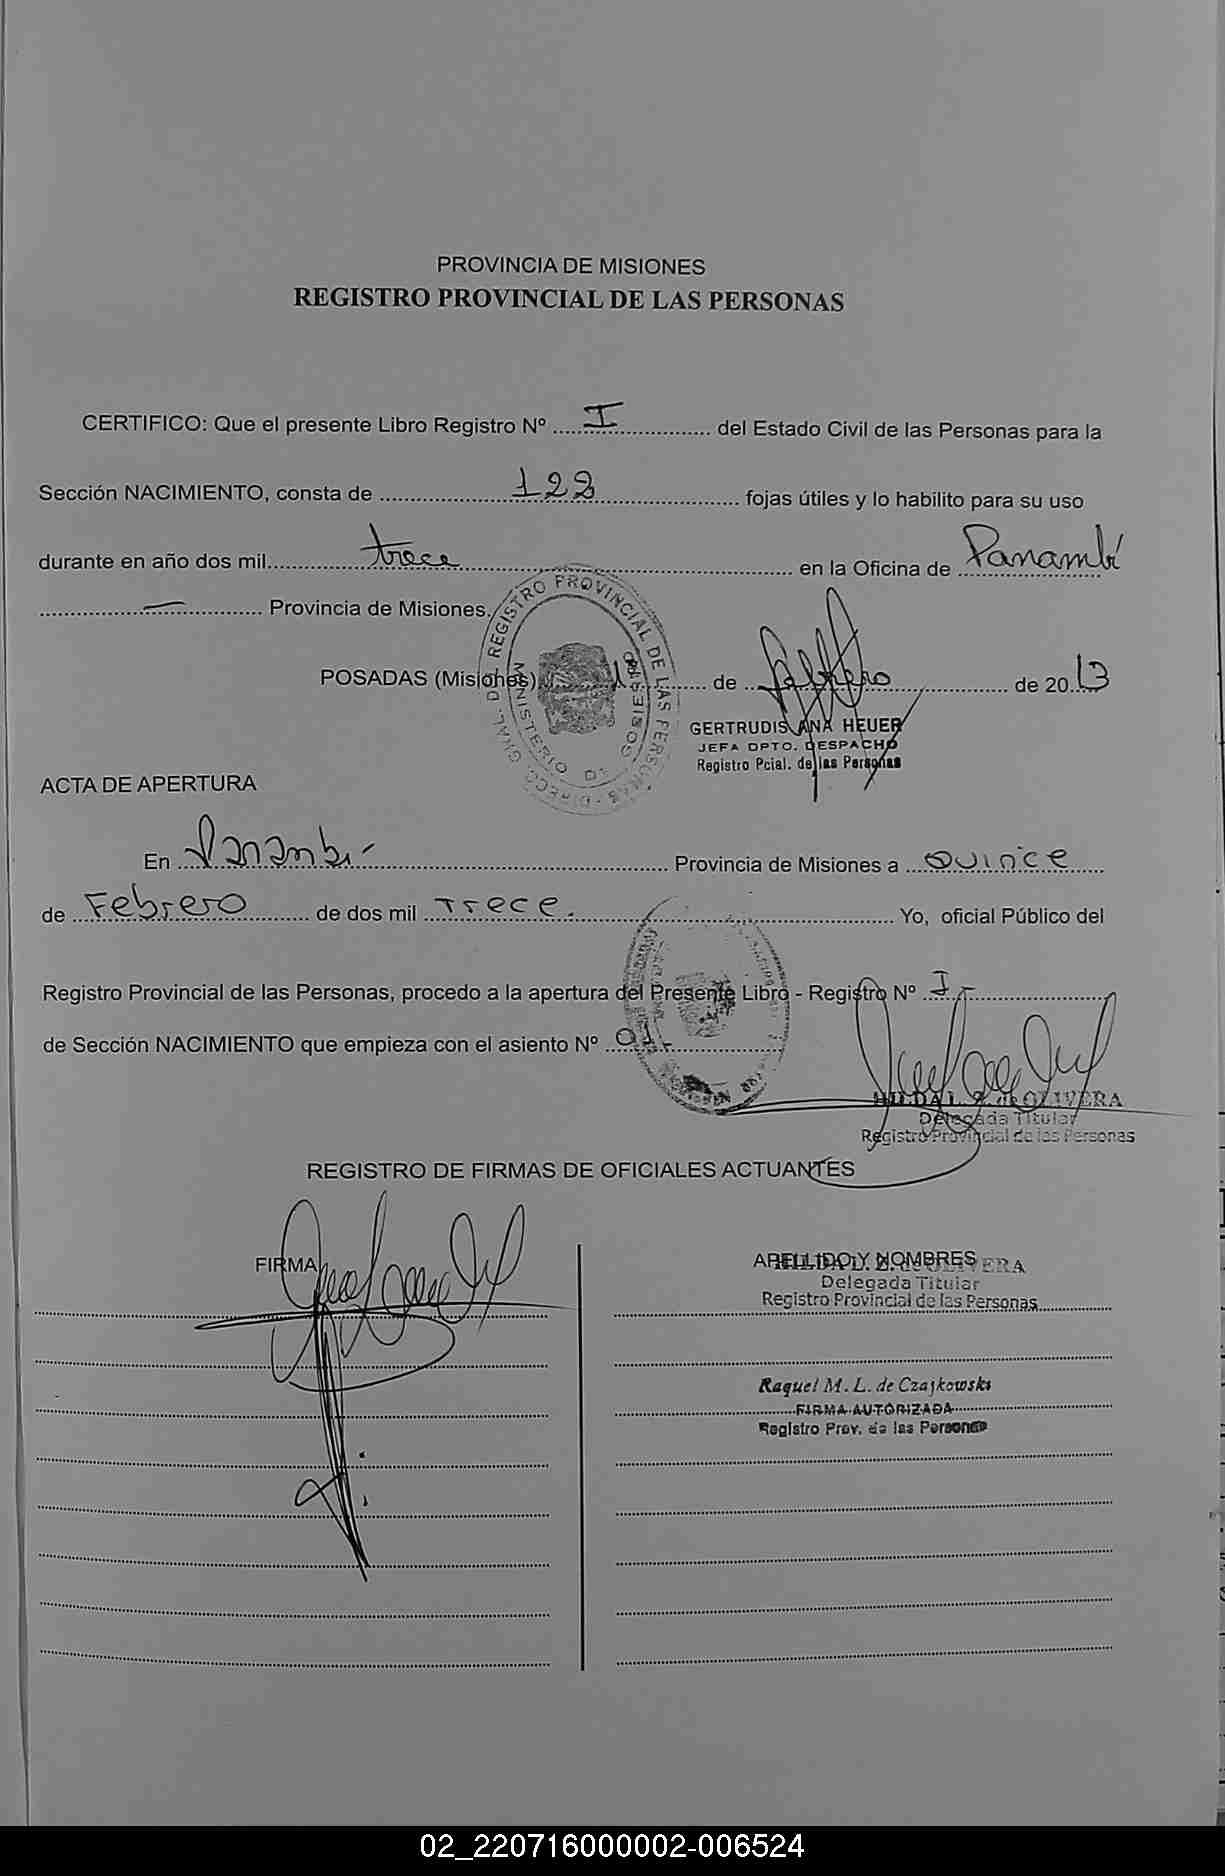 PROVINCIA DE MISIONES
REGISTRO PROVINCIAL DE LAS PERSONAS
CERTIFICO: Que el presente Libro Registro Nº I del Estado Civil de las Personas para la
Sección NACIMIENTO, consta de 122 fojas útiles y lo habilito para su uso
durante en año dos mil trece en la Oficina de Panambí
— Provincia de Misiones.
POSADAS (Misiones) de febrero de 2013
DIRECC. GRAL. DEL REGISTRO PROVINCIAL DE LAS PERSONAS
MINISTERIO DE GOBIERNO
GERTRUDIS ANA HEUER
JEFA DPTO. DESPACHO
Registro Pcial. de las Personas
ACTA DE APERTURA
En Panambí- Provincia de Misiones a quince
de Febrero de dos mil Trece. Yo, oficial Público del
Registro Provincial de las Personas, procedo a la apertura del Presente Libro - Registro Nº I-
de Sección NACIMIENTO que empieza con el asiento Nº 01-
HILDA L. Z. de OLIVERA
Delegada Titular
Registro Provincial de las Personas
REGISTRO DE FIRMAS DE OFICIALES ACTUANTES
FIRMA
APELLIDO Y NOMBRES
HILDA L. Z. de OLIVERA
Delegada Titular
Registro Provincial de las Personas
Raquel M. L. de Czajkowski
FIRMA AUTORIZADA
Registro Prov. de las Personas
02_220716000002-006524